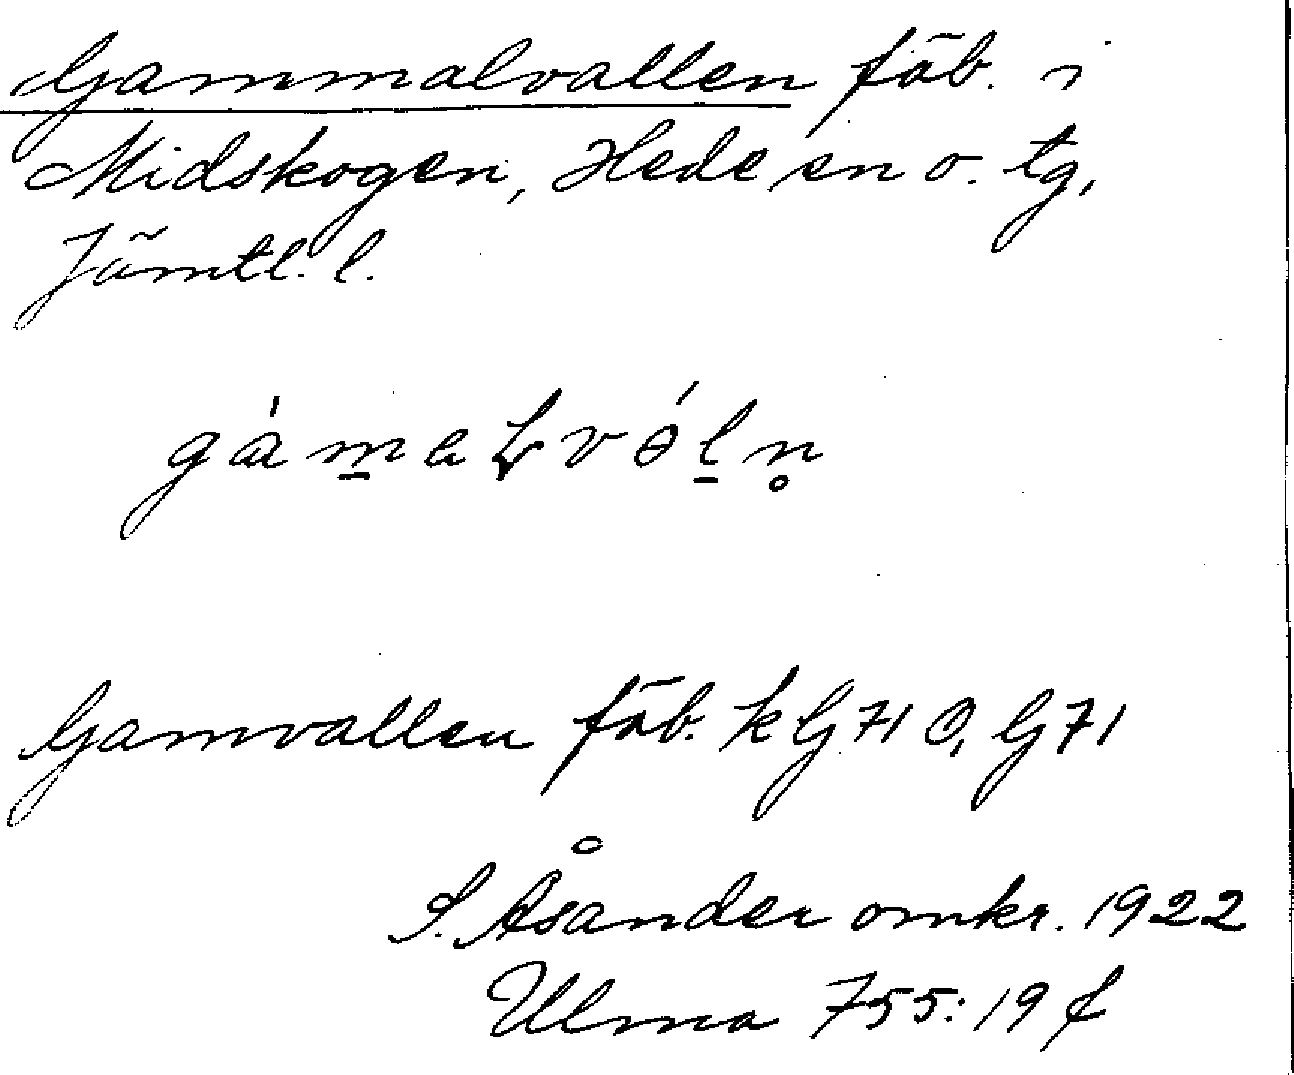 Gammalvallen fäb. i
Midskogen, Hede sn o. tg,
Jämtl. l.
gàm̱aƚvə́ḻn̥
Gamvallen fäb. k G 71 O, G 71
S. Åsander omkr. 1922
Ulma 755: 19 f